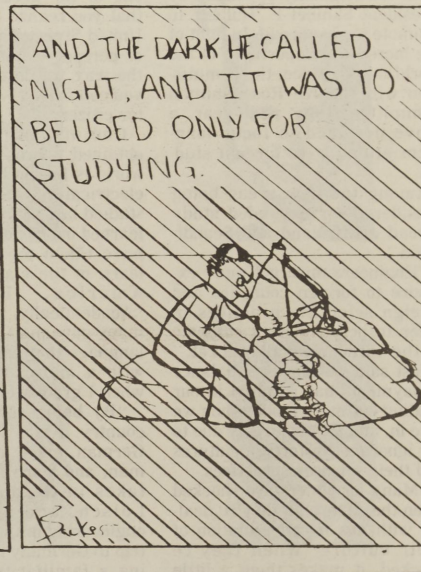 AND THE DARK HE CALLED
NIGHT, AND IT WAS TO
BE USED ONLY FOR
STUDYING.